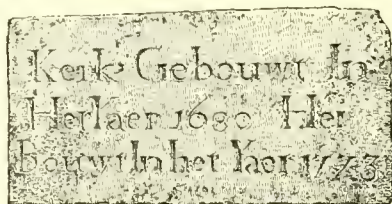 Kerk Gebouwt In
Herlaer 1680 Her
bouwt In het Iaer 1773